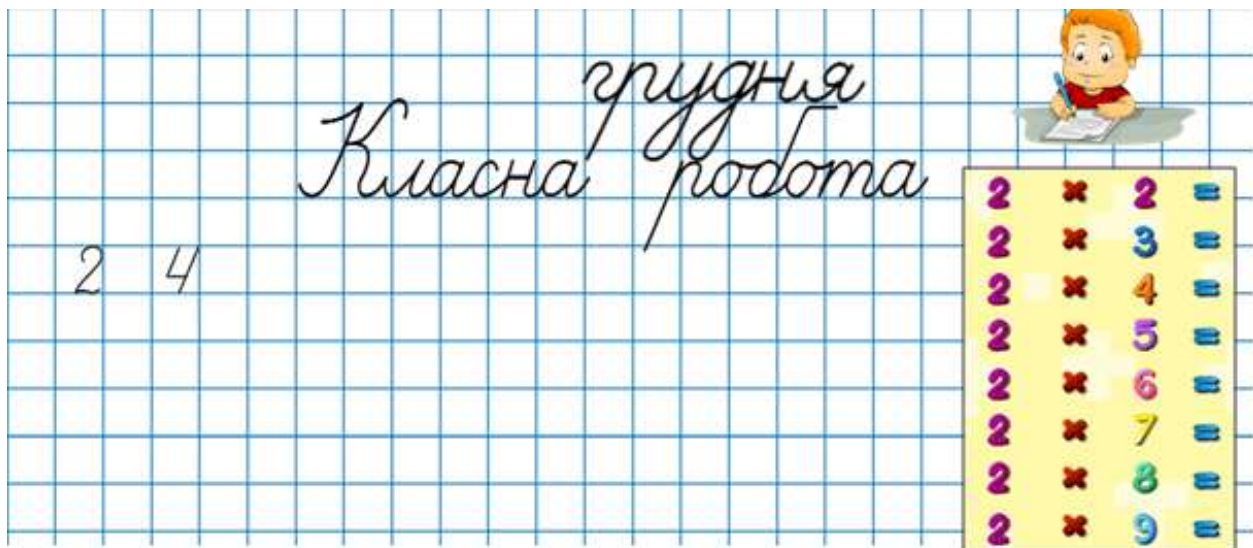 грудня
Класна робота
2 4
2 × 2 =
2 × 3 =
2 × 4 =
2 × 5 =
2 × 6 =
2 × 7 =
2 × 8 =
2 × 9 =